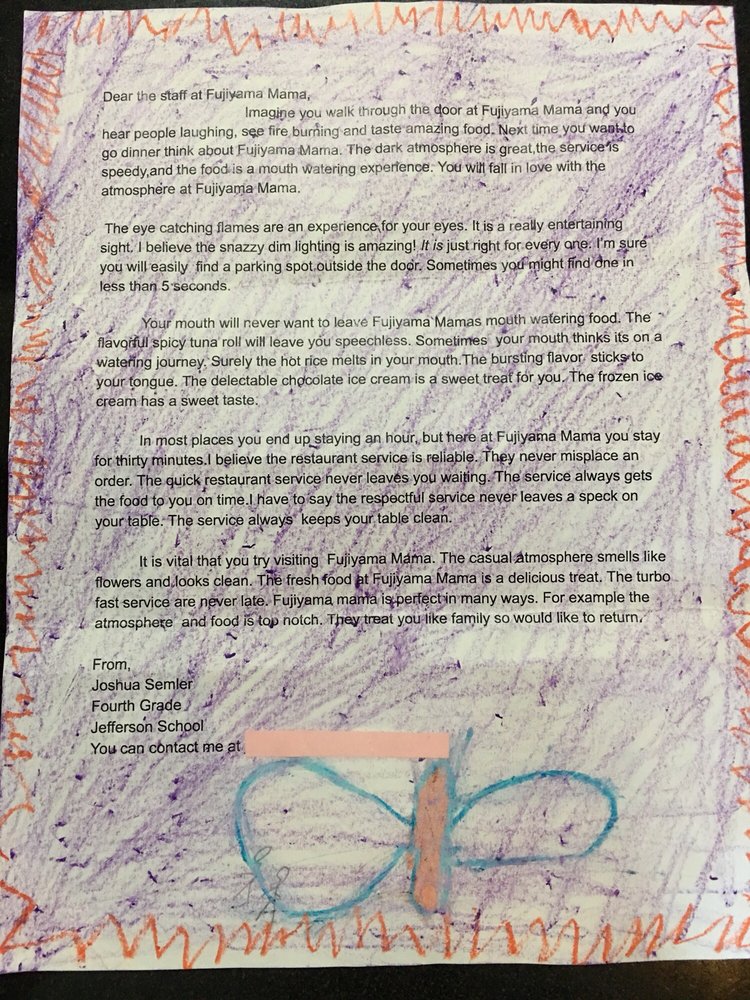 Dear the staff at Fujiyama Mama,
Imagine you walk through the door at Fujiyama Mama and you
hear people laughing, see fire burning and taste amazing food. Next time you want to
go dinner think about Fujiyama Mama. The dark atmosphere is great,the service is
speedy,and the food is a mouth watering experience. You will fall in love with the
atmosphere at Fujiyama Mama.
The eye catching flames are an experience for your eyes. It is a really entertaining
sight. I believe the snazzy dim lighting is amazing! It is just right for every one. I'm sure
you will easily find a parking spot outside the door. Sometimes you might find one in
less than 5 seconds.
Your mouth will never want to leave Fujiyama Mamas mouth watering food. The
flavorful spicy tuna roll will leave you speechless. Sometimes your mouth thinks its on a
watering journey. Surely the hot rice melts in your mouth.The bursting flavor sticks to
your tongue. The delectable chocolate ice cream is a sweet treat for you. The frozen ice
cream has a sweet taste.
In most places you end up staying an hour, but here at Fujiyama Mama you stay
for thirty minutes.I believe the restaurant service is reliable. They never misplace an
order. The quick restaurant service never leaves you waiting. The service always gets
the food to you on time.I have to say the respectful service never leaves a speck on
your table. The service always keeps your table clean.
It is vital that you try visiting Fujiyama Mama. The casual atmosphere smells like
flowers and looks clean. The fresh food at Fujiyama Mama is a delicious treat. The turbo
fast service are never late. Fujiyama mama is perfect in many ways. For example the
atmosphere and food is top notch. They treat you like family so would like to return.
From,
Joshua Semler
Fourth Grade
Jefferson School
You can contact me at